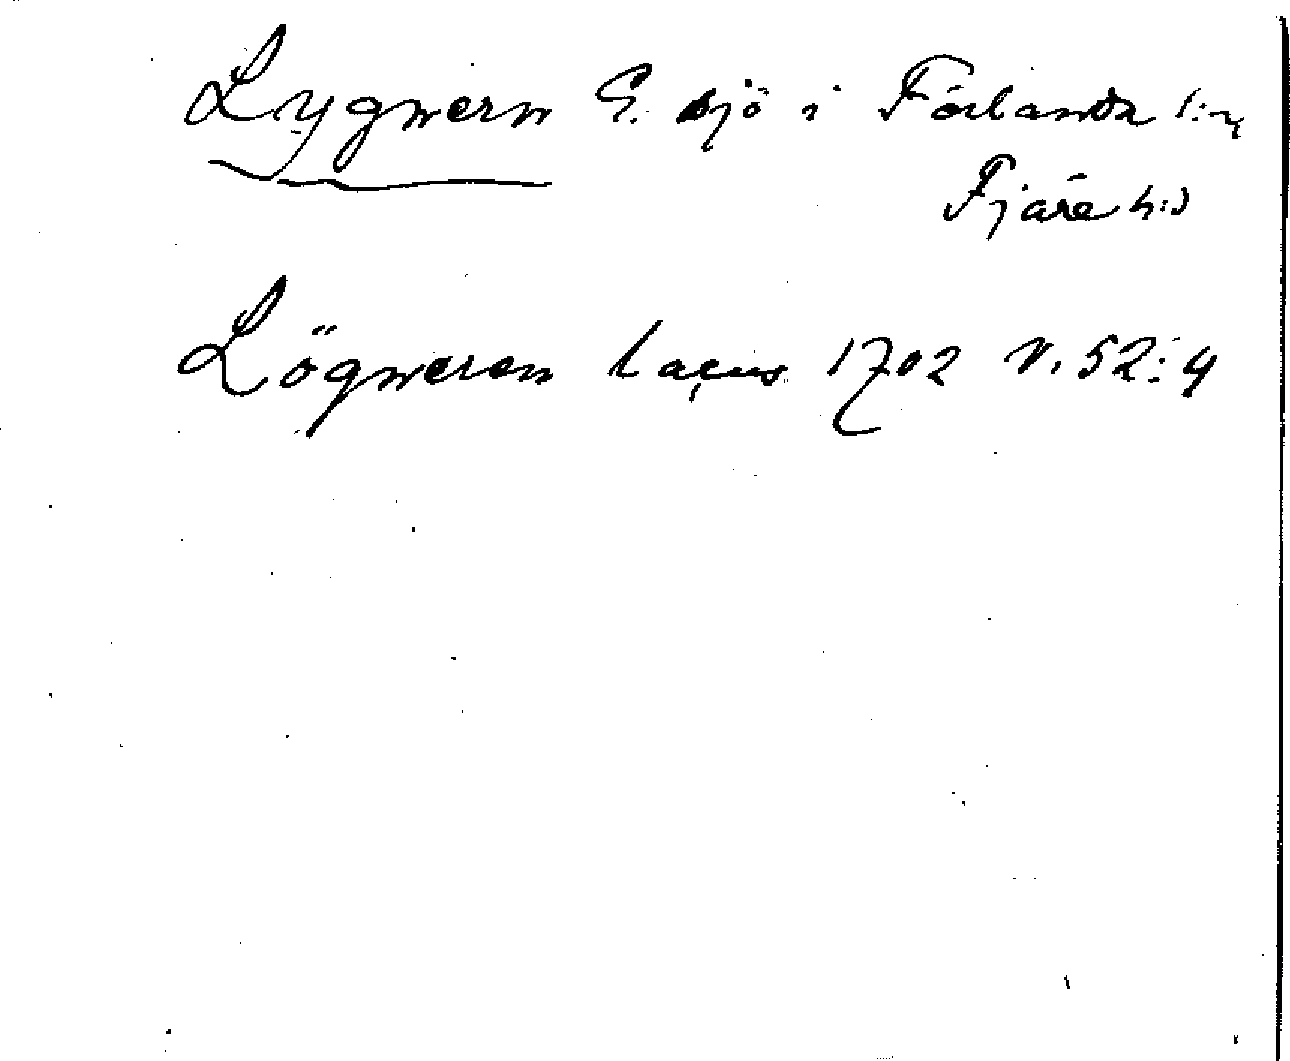 Lygnern S. sjö i Förlanda s:n
Fjäre h:d
Lögneren lacus 1702 V. 52:4